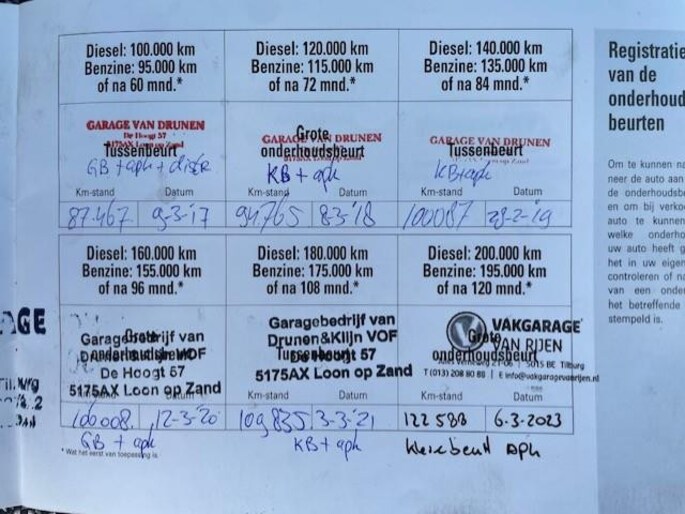 Diesel: 100.000 km
Benzine: 95.000 km
of na 60 mnd.*
GARAGE VAN DRUNEN
De Hoogt 57
5175AX Loon op Zand
Tussenbeurt
GB + apk +
Km-stand Datum
87.467 9-3-17
Diesel: 120.000 km
Benzine: 115.000 km
of na 72 mnd.*
Grote
GARAGE VAN DRUNEN
onderhoudsbeurt
5175AX Loon op Zand
KB + apk
Km-stand Datum
94765 8-3-'18
Diesel: 140.000 km
Benzine: 135.000 km
of na 84 mnd.*
GARAGE VAN DRUNEN
Tussenbeurt
op Zand
KB + apk
Km-stand Datum
100087 28-2-19
Diesel: 160.000 km
Benzine: 155.000 km
of na 96 mnd.*
Grote
Garagebedrijf van
onderhoudsbeurt
Drunen&Klijn VOF
De Hoogt 57
5175AX Loon op Zand
Datum
100008 12-3-'20
GB + apk
Diesel: 180.000 km
Benzine: 175.000 km
of na 108 mnd.*
Garagebedrijf van
Drunen&Klijn VOF
Tussenbeurt
De Hoogt 57
5175AX Loon op Zand
Km-stand Datum
109835 3-3-'21
KB + apk
Diesel: 200.000 km
Benzine: 195.000 km
of na 120 mnd.*
VAKGARAGE
VAN RIJEN
Grote
onderhoudsbeurt
5015 BE Tilburg
T (013) 208 80 88 | E info@vakgaragevanrijen.nl
Km-stand Datum
122 588 6-3-2023
kleine beurt APK
* Wat het eerst van toepassing is.
AGE
Registratie
van de
onderhoud
beurten
Om te kunnen na
neer de auto aan
de onderhoudsbe
en om bij verko
auto te kunnen
welke onderho
uw auto heeft g
het in uw eigen
controleren of na
van een onder
het betreffende
stempeld is.